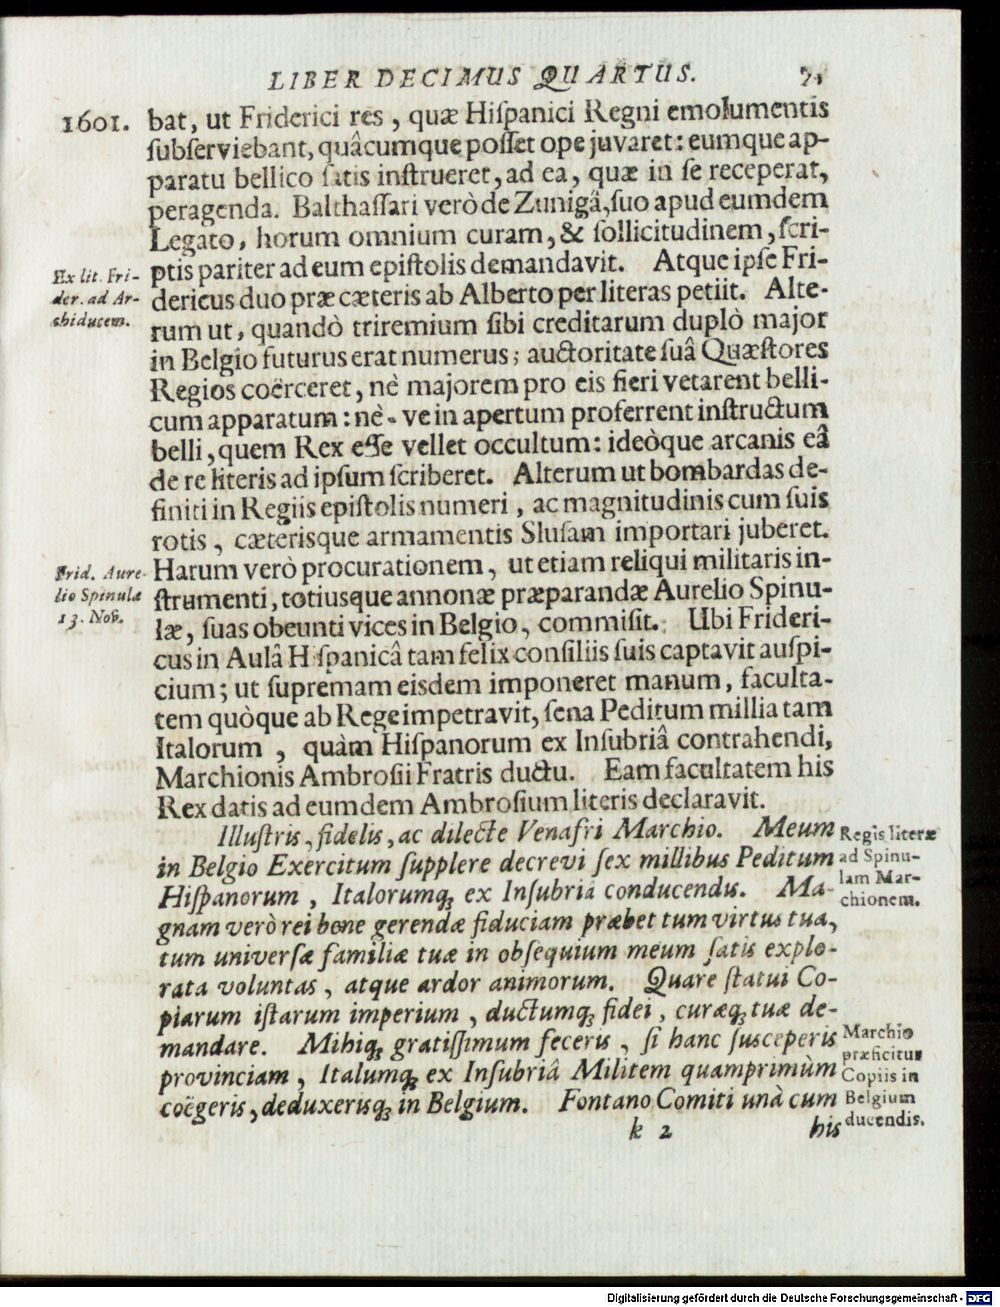 LIBER DECIMUS QUARTUS.
1601. bat, ut Friderici res, quæ Hiſpanici Regni emolumentis
ſubſerviebant, quâcumque poſſet ope juvaret: eumque ap-
paratu bellico ſatis inſtrueret, ad ea, quæ in ſe receperat,
peragenda. Balthaſſari verò de Zunigâ, ſuo apud eumdem
Legato, horum omnium curam, & ſollicitudinem, ſcri-
ptis pariter ad eum epiſtolis demandavit. Atque ipſe Fri-
dericus duo præ cæteris ab Alberto per literas petiit. Alte-
rum ut, quandò triremium ſibi creditarum duplò major
in Belgio futurus erat numerus; auctoritate ſuâ Quæſtores
Regios coërceret, nè majorem pro eis fieri vetarent belli-
cum apparatum: nè-ve in apertum proferrent inſtructum
belli, quem Rex eſſe vellet occultum: ideòque arcanis eâ
de re literis ad ipſum ſcriberet. Alterum ut bombardas de-
finiti in Regiis epiſtolis numeri, ac magnitudinis cum ſuis
rotis, cæterisque armamentis Sluſam importari juberet.
Harum verò procurationem, ut etiam reliqui militaris in-
ſtrumenti, totiusque annonæ præparandæ Aurelio Spinu-
læ, ſuas obeunti vices in Belgio, commiſit. Ubi Frideri-
cus in Aulâ Hiſpanicâ tam felix conſiliis ſuis captavit auſpi-
cium; ut ſupremam eisdem imponeret manum, faculta-
tem quòque ab Rege impetravit, ſena Peditum millia tam
Italorum, quàm Hiſpanorum ex Inſubriâ contrahendi,
Marchionis Ambroſii Fratris ductu. Eam facultatem his
Rex datis ad eumdem Ambroſium literis declaravit.
Illuſtris, fidelis, ac dilecte Venafri Marchio. Meum
in Belgio Exercitum ſupplere decrevi ſex millibus Peditum
Hiſpanorum, Italorumq; ex Inſubriâ conducendis. Ma-
gnam verò rei bene gerendæ fiduciam præbet tum virtus tua,
tum univerſæ familiæ tuæ in obſequium meum ſatis explo-
rata voluntas, atque ardor animorum. Quare ſtatui Co-
piarum iſtarum imperium, ductumq; fidei, curæq; tuæ de-
mandare. Mihiq; gratiſſimum feceris, ſi hanc ſusceperis
provinciam, Italumq; ex Inſubriâ Militem quamprimùm
coëgeris, deduxerisq; in Belgium. Fontano Comiti unà cum
k 2 his
Ex lit. Fri-
der. ad Ar-
chiducem.
Frid. Aure-
lio Spinulæ
13. Nov.
Regis literæ
ad Spinu-
lam Mar-
chionem.
Marchio
præficitur
Copiis in
Belgium
ducendis.
Digitalisierung gefördert durch die Deutsche Forschungsgemeinschaft - DFG